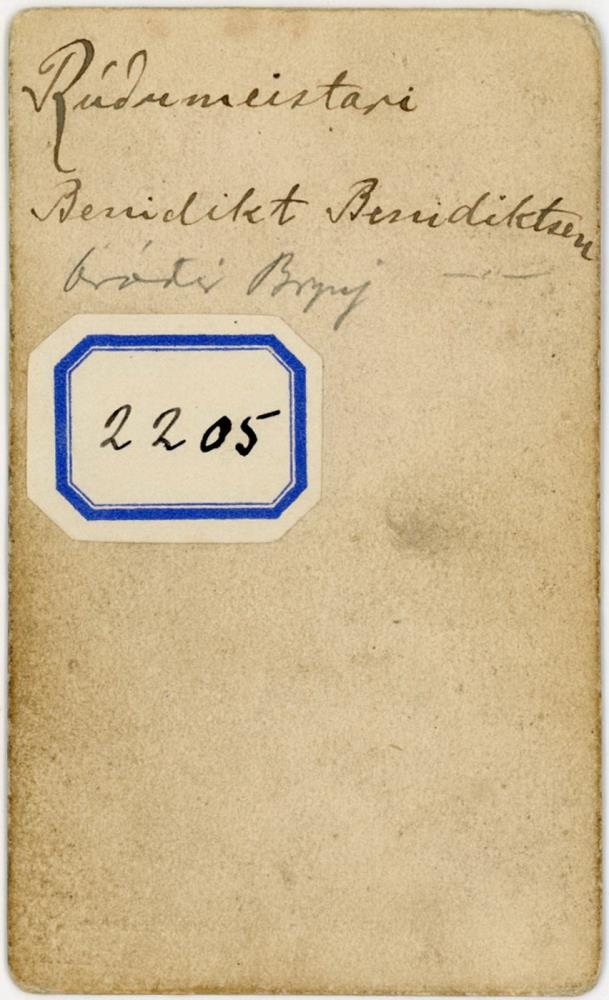 Rúðumeistari
Benidikt Benidiktsen
bróðir Brynj — " —
2205